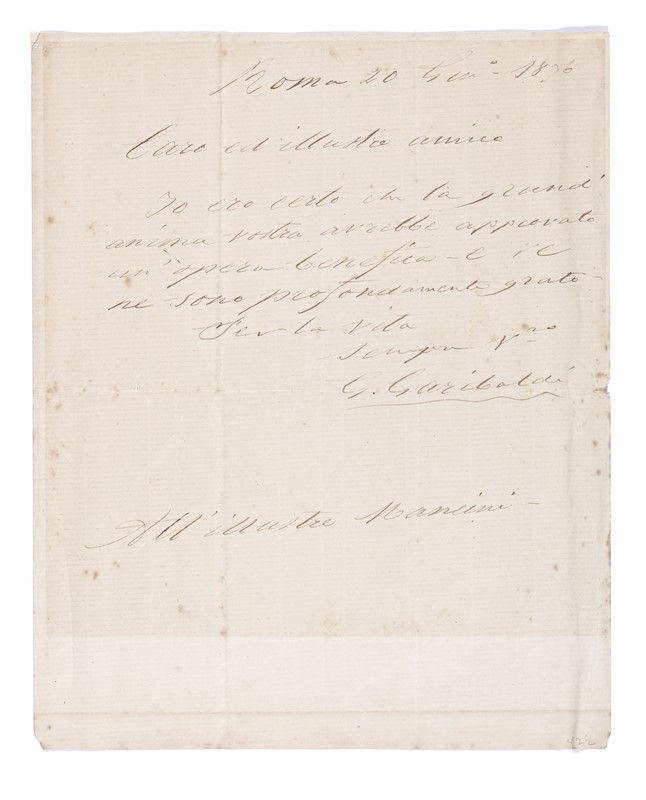 Roma 20 Gen.o 1876
Caro ed illustre amico
Io ero certo che la grand'
anima vostra avrebbe approvato
un'opera benefica - e ve
ne sono profondamente grato -
Per la vita
sempre V.ro
G. Garibaldi
All'illustre Mancini -